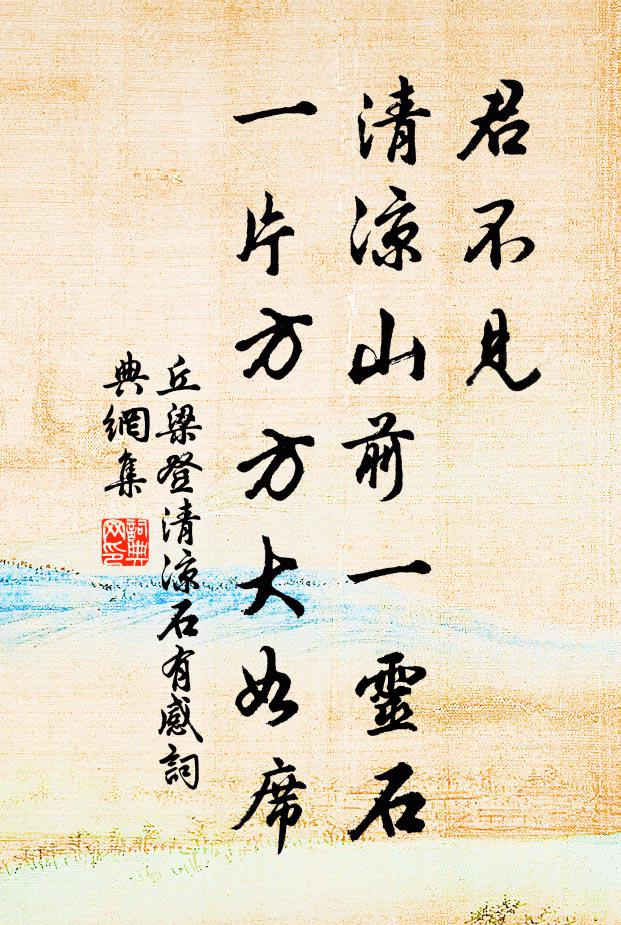 君不見
清涼山前一靈石
一片方方大如席
丘梁登清涼石有感詞
典網集
詞典
网印